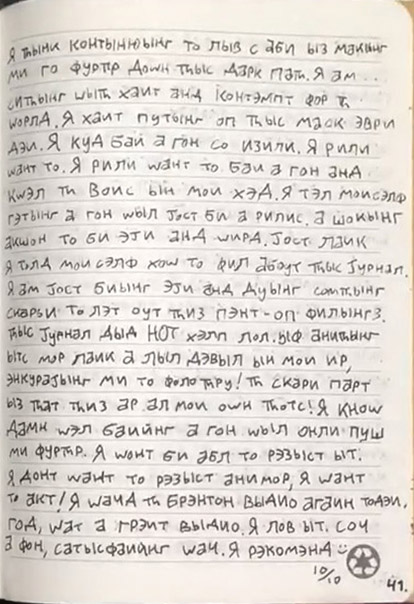 Я ТЫНК КОНТЫНЮЫНГ ТО ЛЫВ С АБИ ЫЗ МАКЫНГ
МИ ГО ФУРТР ДОWН ТЫС ДАРК ПАТ. Я АМ ...
СИТЫНГ WЫТ ХАИТ АНД КОНТЭМПТ ФОР Т
WОРЛД. Я ХАИТ ПУТЫНГ ОП ТЫС МАСК ЭВРИ
ДЭИ. Я КУД БАЙ А ГОН СО ИЗИЛИ. Я РИЛИ
WАНТ ТО. Я РИЛИ WАНТ ТО БАИ А ГОН АНД
КWЭЛ Т ВОИС ЫН МОИ ХЭД. Я ТЭЛ МОИСЭЛФ
ГЭТЫНГ А ГОН WЫЛ JОСТ БИ А РИЛИС. А ШОКЫНГ
АКШОН ТО БИ ЭJИ АНД WИРД. JОСТ ЛАИК
Я ТОЛД МОИ СЭЛФ ХОW ТО ФИЛ АБОУТ ТЫС JУРНАЛ.
Я АМ JОСТ БИЫНГ ЭJИ АНД ДУЫНГ СОМТЫНГ
СКАРЫИ ТО ЛЭТ ОУТ ТИЗ ПЭНТ-ОП ФИЛЫНГЗ.
ТЫС JУРНАЛ ДЫД НОТ ХЭЛП ЛОЛ. ЫФ АНИТЫНГ
ЫТС МОР ЛАИК А ЛЫЛ ДЭВЫЛ ЫН МОИ ИР,
ЭНКУРАJЫНГ МИ ТО ФОЛОТРУ! Т СКАРИ ПАРТ
ЫЗ ТАТ ТИЗ АР АЛ МОИ ОWН ТОТС! Я КНОW
ДАМН WЭЛ БАИЙНГ А ГОН WЫЛ ОНЛИ ПУШ
МИ ФУРТР. Я WОНТ БИ АБЛ ТО РЭЗЫСТ ЫТ.
Я ДОНТ WАНТ ТО РЭЗЫСТ АНИМОР, Я WАНТ
ТО АКТ! Я WАЧД Т БРЭНТОН ВЫДИО АГАИН ТОДЭИ.
ГОД, WАТ А ГРЭИТ ВЫДИО. Я ЛОВ ЫТ. СОЧ
А ФОН, САТЫСФАИЙНГ WАЧ. Я РЭКОМЭНД
10/10
41.